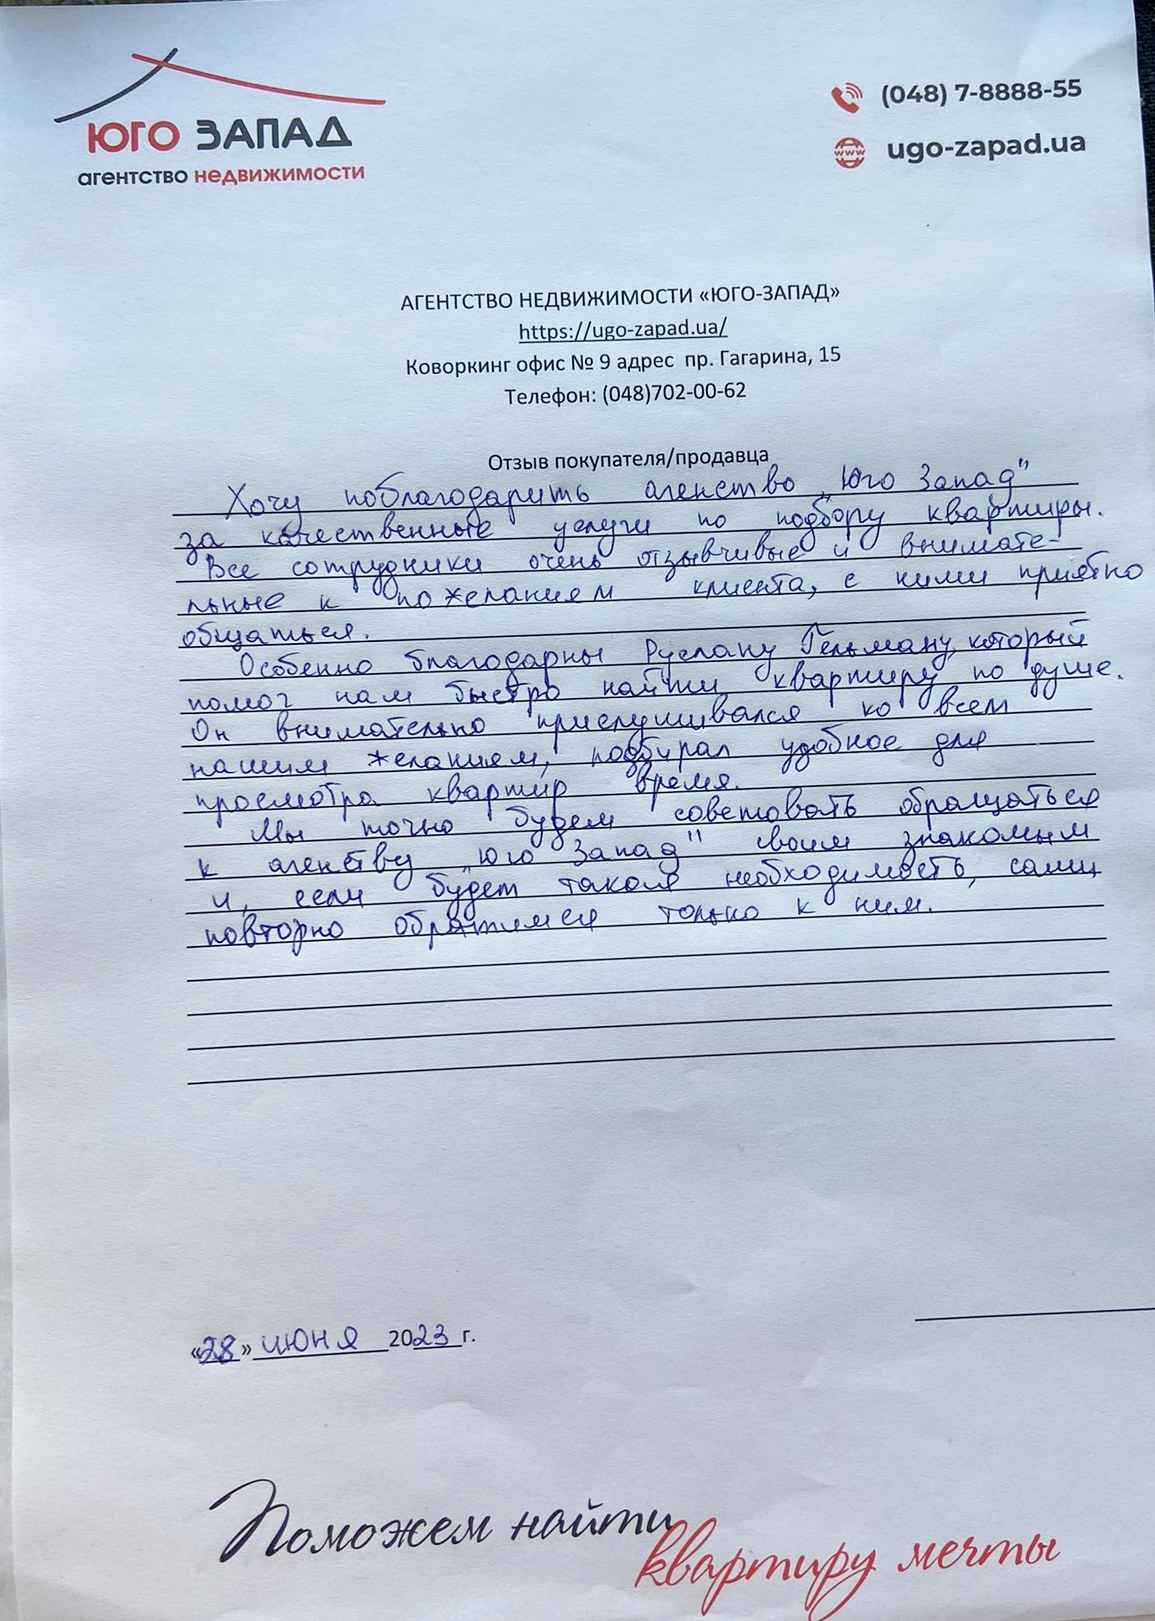 ЮГО ЗАПАД
агентство недвижимости
(048) 7-8888-55
www
ugo-zapad.ua
АГЕНТСТВО НЕДВИЖИМОСТИ «ЮГО-ЗАПАД»
https://ugo-zapad.ua/
Коворкинг офис № 9 адрес пр. Гагарина, 15
Телефон: (048)702-00-62
Отзыв покупателя/продавца
Хочу поблагодарить агенство „Юго Запад"
за качественные услуги по подбору квартиры.
Все сотрудники очень отзывчивые и внимате-
льные к пожеланием клиента, с ними приятно
общаться.
Особенно благодарны Руслану Гельману, который
помог нам быстро найти квартиру по душе.
Он внимательно прислушивался ко всем
нашим желанием, подбирал удобное для
просмотра квартир время.
Мы точно будем советовать обращаться
к агенству „Юго Запад" своим знакомым
и, если будет такая необходимость, сами
повторно обратимся только к ним.
«28» июня 2023 г.
Поможем найти
квартиру мечты